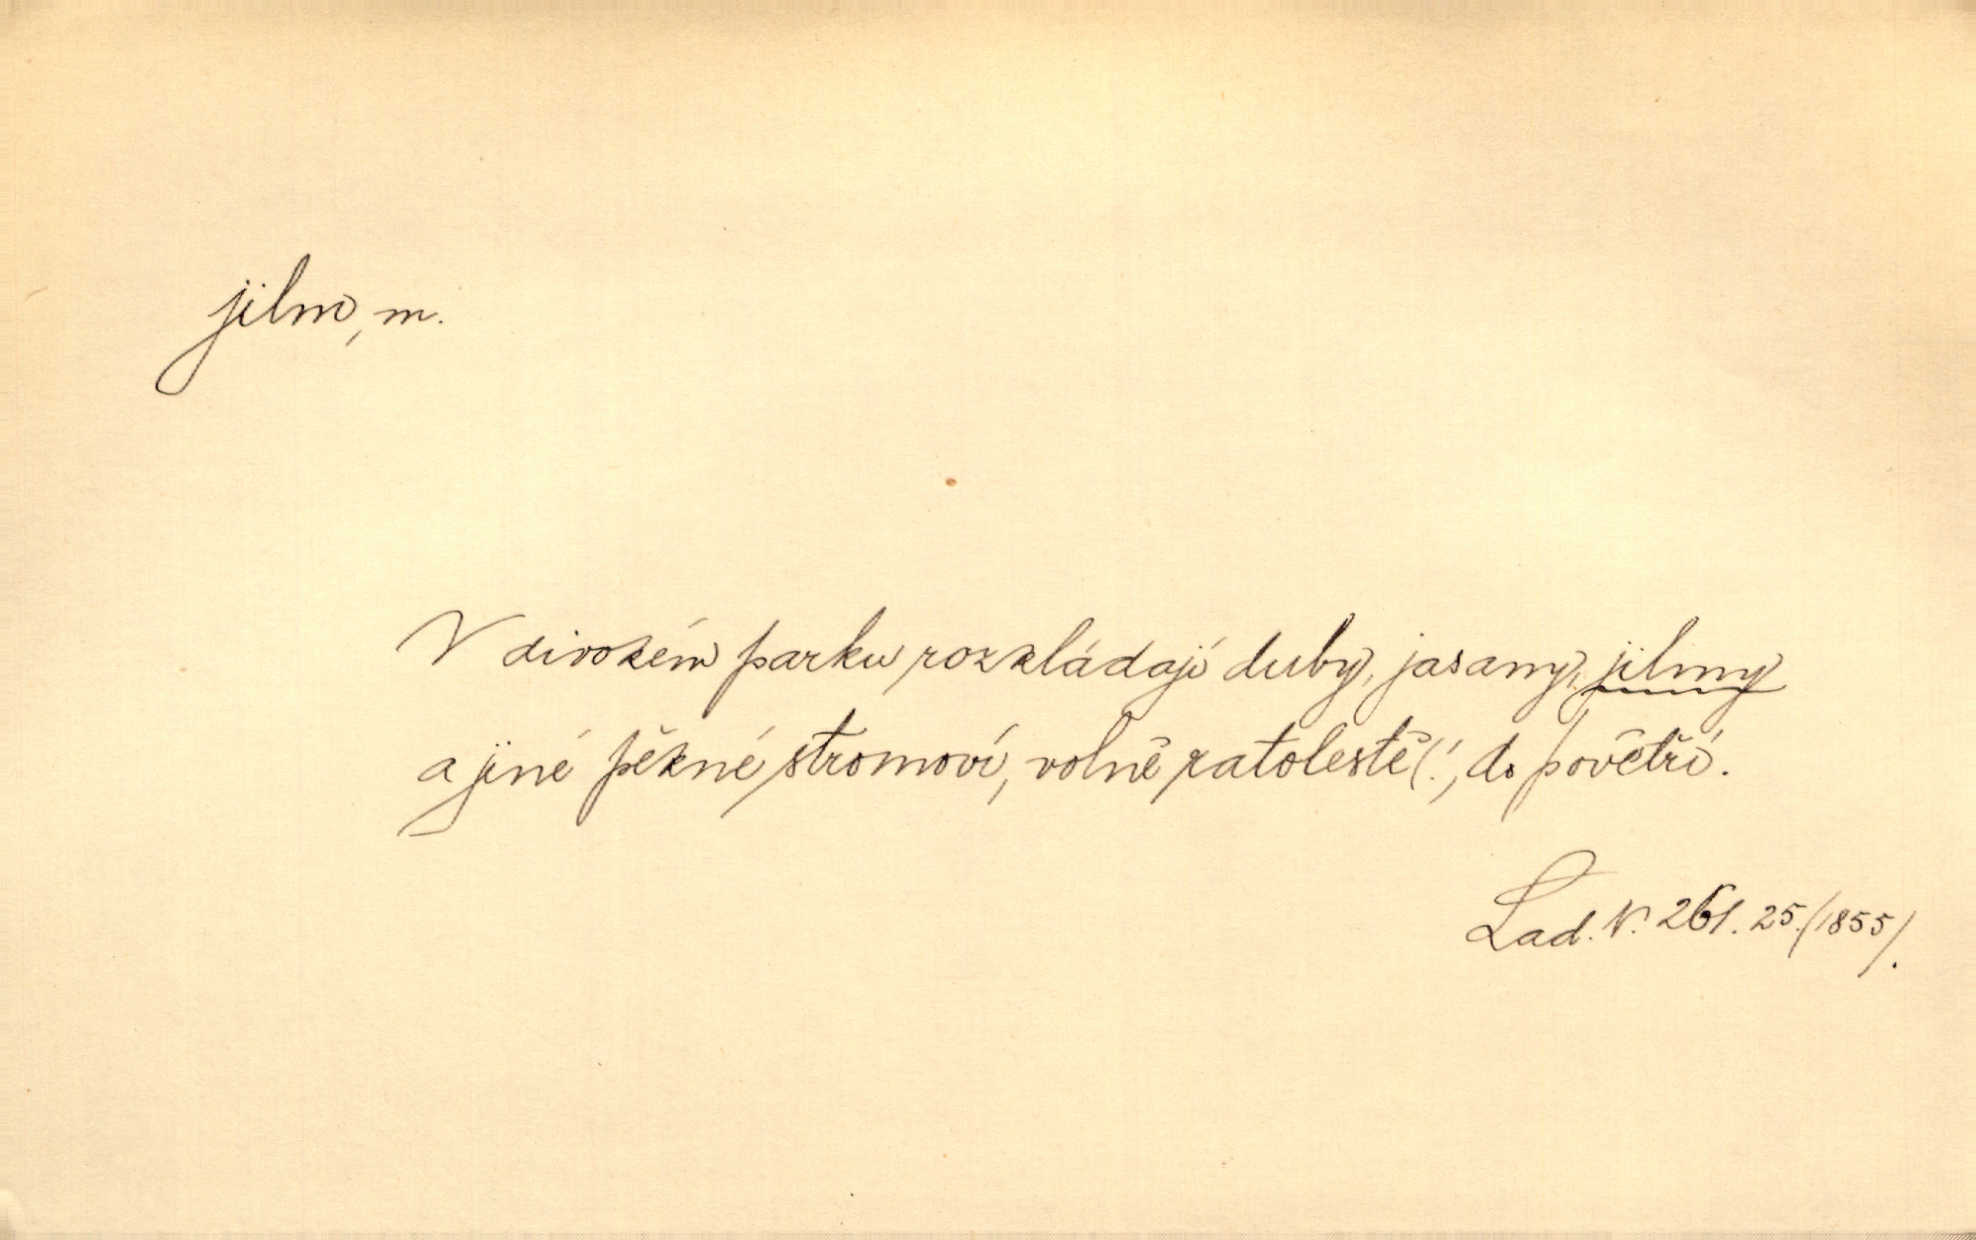 jilm, m.
V divokém parku rozkládají duby, jasany, jilmy
a jiné pěkné stromoví, volně ratolestě(!) do povětří.
Lad. N. 261. 25. (1855).